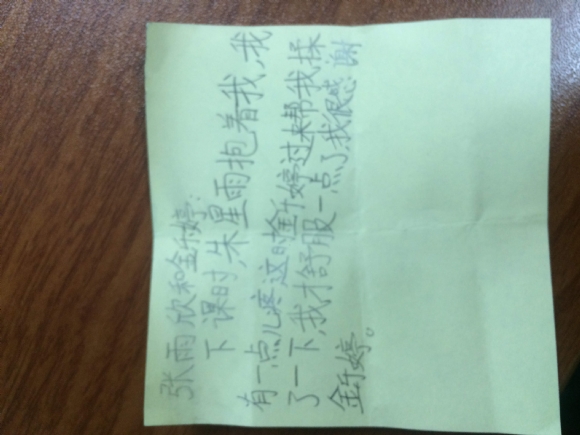 张雨欣和金乐婷:
下课时,朱星雨抱着我,我
有一点儿疼这时金乐婷过来帮我揉
了一下,我才舒服一点了,我很感谢
金乐婷。